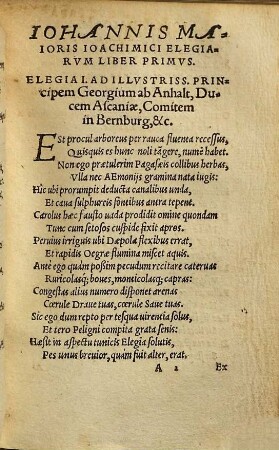 IOHANNIS MA-
IORIS IOACHIMICI ELEGIA-
RVM LIBER PRIMVS.
ELEGIA I. AD ILLVSTRISS. PRIN-
cipem Georgium ab Anhalt, Du-
cem Ascaniæ, Comitem
in Bernburg, &c.
EST procul arboreus per rauca fluenta recessus,
Quisquis es hunc noli tãgere, numẽ habet.
Non ego prætulerim Pagaseis collibus herbas,
Vlla nec AEmonijs gramina nata iugis:
Hic ubi prorumpit deducta canalibus unda,
Et caua sulphureis sontibus antra tepent.
Carolus hæc fausto uada prodidit omine quondam
Tunc cum setosos cuspide fixit apros.
Peruius irriguis ubi Dæpola flexibus errat,
Et rapidis Oegræ flumina miscet aquis.
Ante ego quàm possim pecudum recitare cateruas
Ruricolasq; boues, monticolasq; capras:
Congestas alius numero disponet arenas
Cœrule Draue tuas, cœrule Saue tuas.
Sic ego dum repto per tesqua uirentia solus,
Et tero Peligni compita grata senis:
Hæsit in aspectu tunicis Elegia solutis,
Pes unus breuior, quàm fuit alter, erat.
A 2 Ex